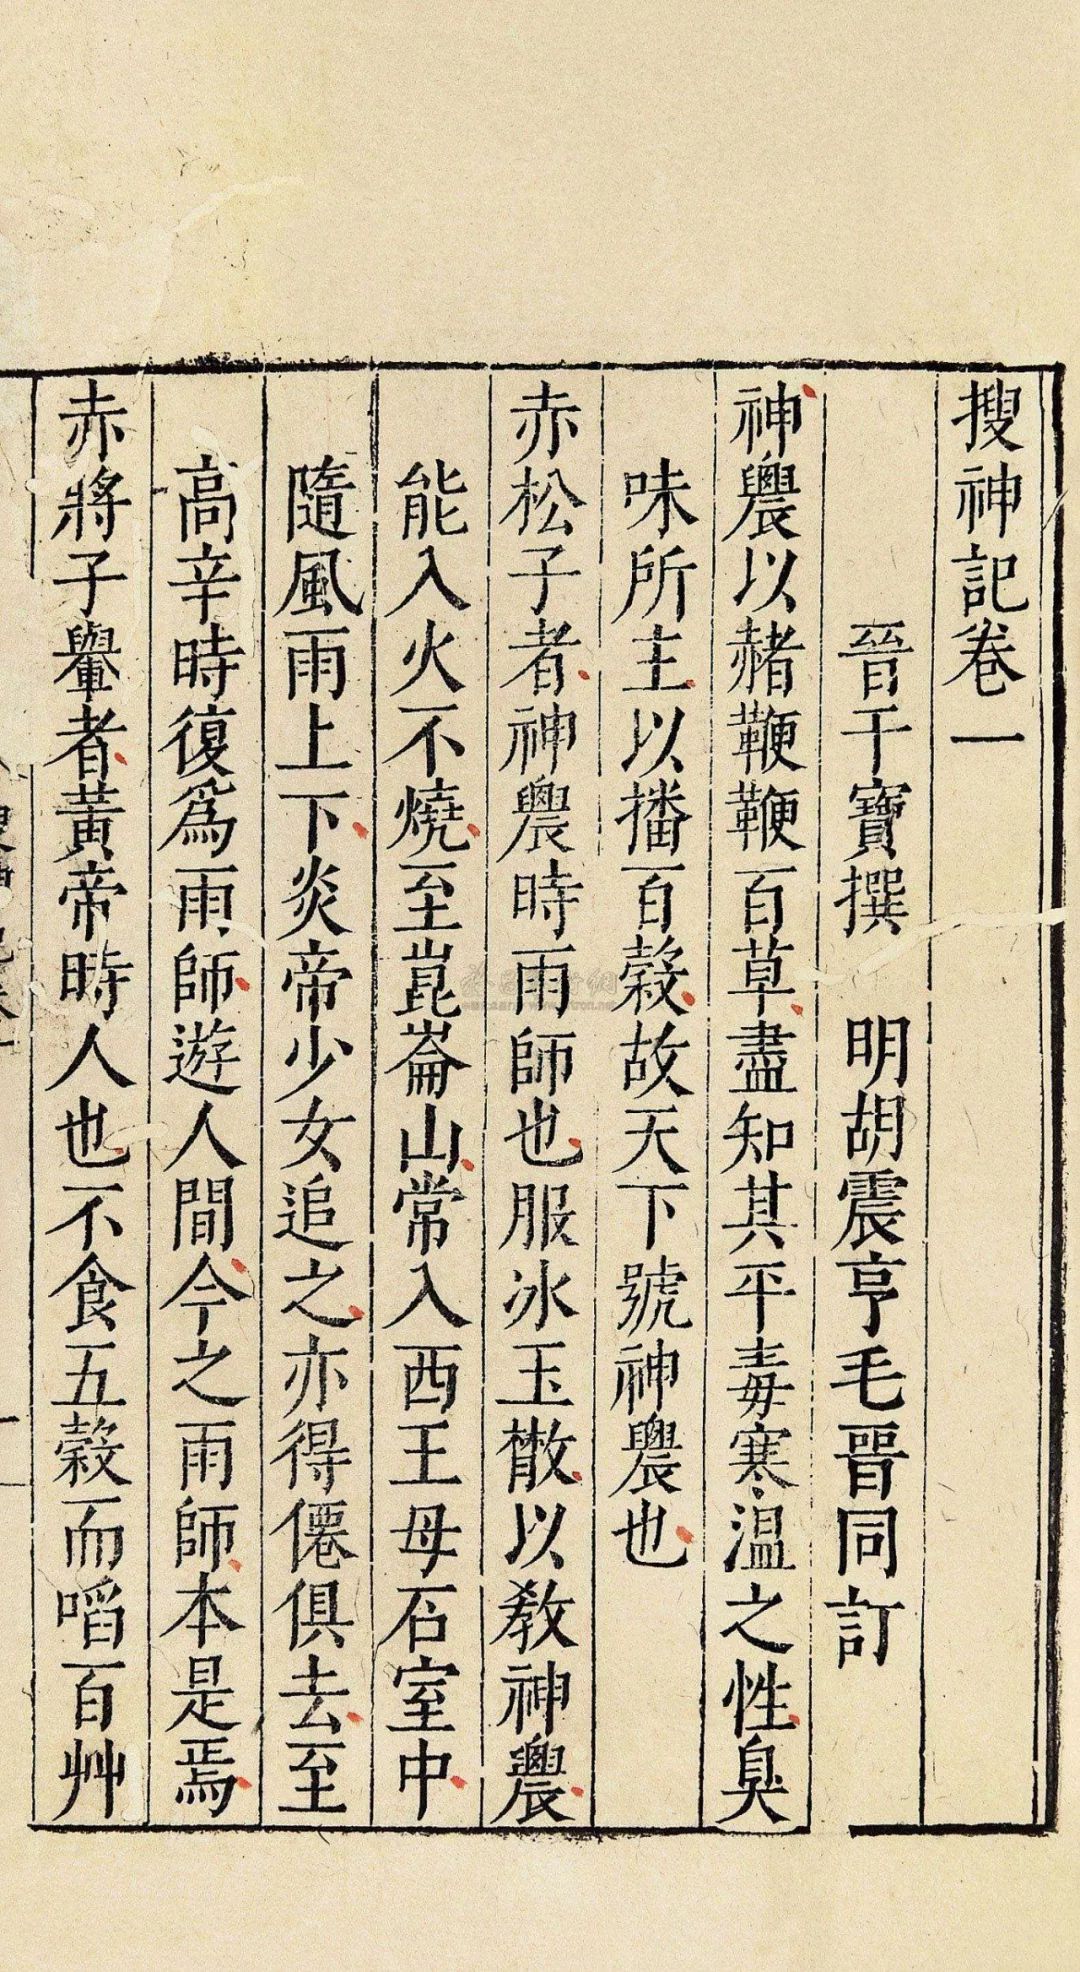 搜神記卷一
晉干寶撰　明胡震亨毛晉同訂
神農以赭鞭鞭百草盡知其平毒寒溫之性臭
味所主以播百穀故天下號神農也
赤松子者神農時雨師也服冰玉散以敎神農
能入火不燒至崑崙山常入西王母石室中
隨風雨上下炎帝少女追之亦得僊俱去至
高辛時復爲雨師遊人間今之雨師本是焉
赤將子轝者黃帝時人也不食五穀而啗百艸